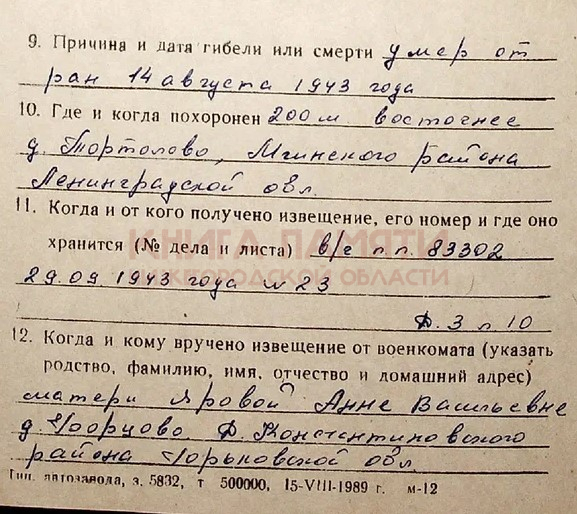 9. Причина и дата гибели или смерти умер от
ран 14 августа 1943 года
10. Где и когда похоронен 200 м восточнее
д. Тортолово, Мгинского района
Ленинградской обл.
11. Когда и от кого получено извещение, его номер и где оно
хранится (№ дела и листа) в/ч п.п. 83302
29.09.1943 года № 23
Д. 3 л. 10
КНИГА ПАМЯТИ
НИЖЕГОРОДСКОЙ ОБЛАСТИ
12. Когда и кому вручено извещение от военкомата (указать
родство, фамилию, имя, отчество и домашний адрес)
матери Яровой Анне Васильевне
д. Д. Константиновского
района Горьковской обл.
Тип. автозавода, з. 5832, т 500000, 15-VIII-1989 г. м-12